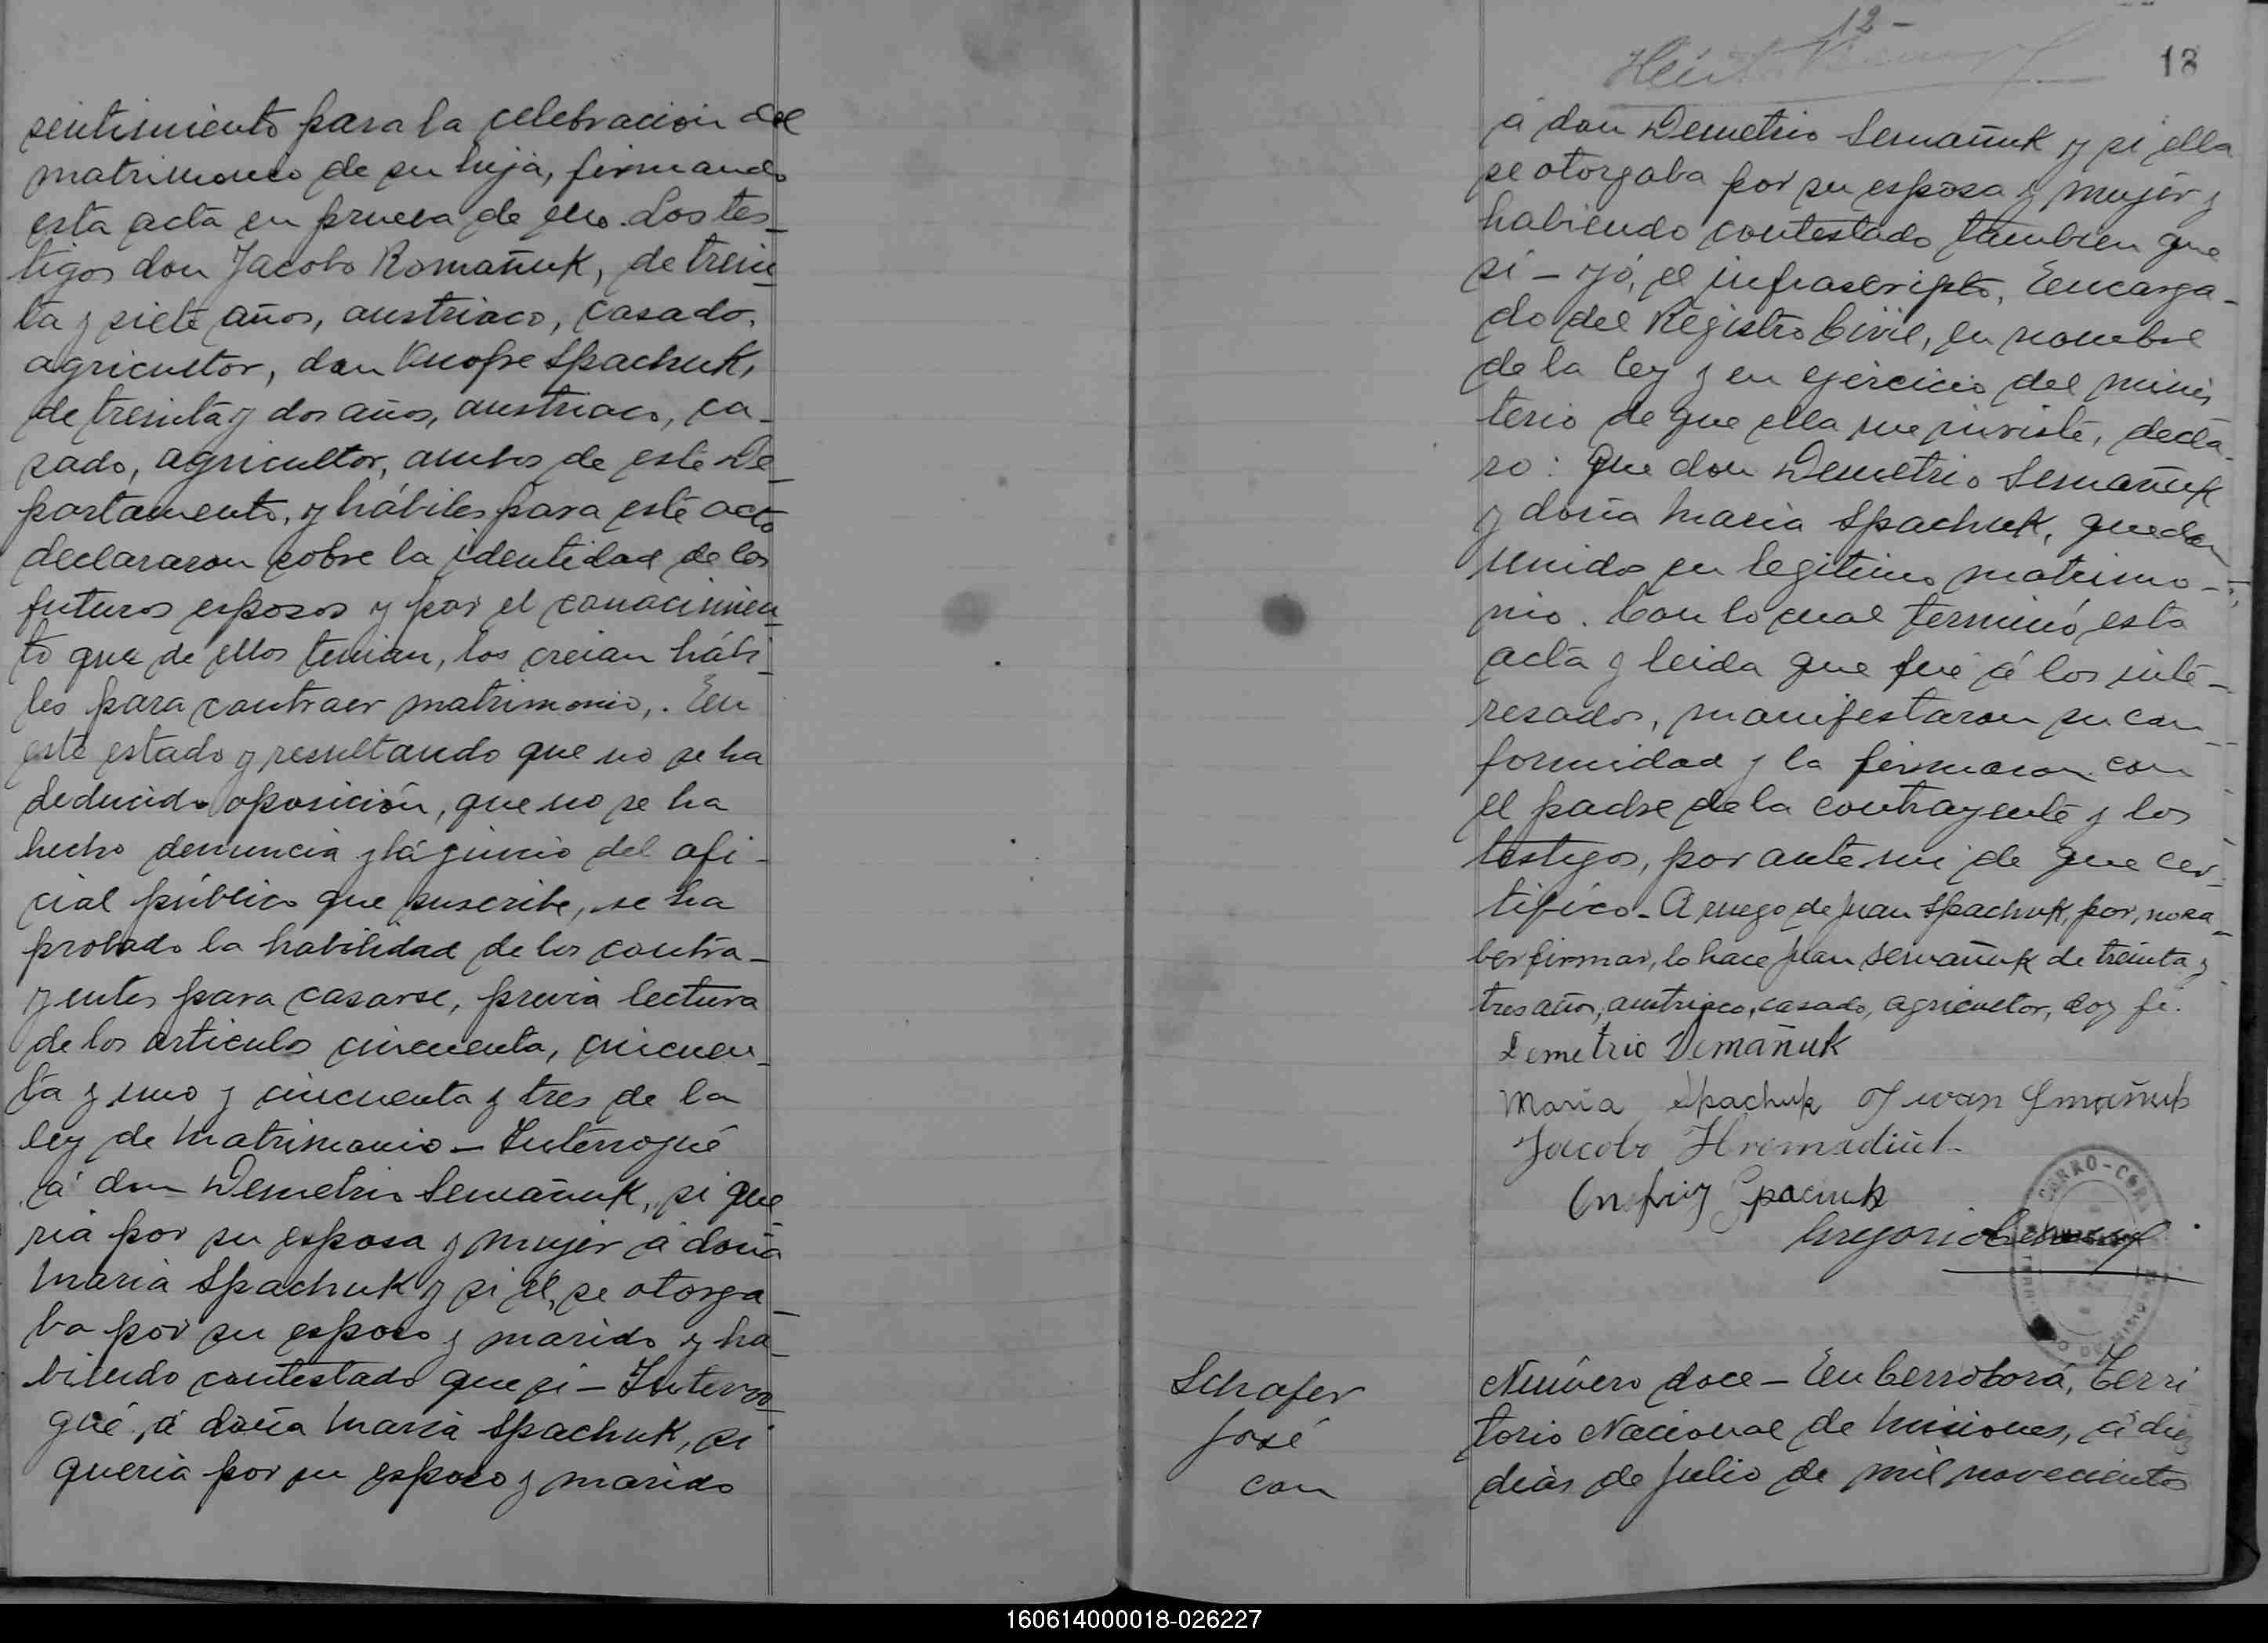 sentimiento para la celebracion del
matrimonio de su hija, firmando
esta acta en prueba de ello. Los tes_
tigos don Jacobo Romañuk, de trein_
ta y siete años, austriaco, casado,
agricultor, don Onofre Spachuk,
de treinta y dos años, austriaco, ca_
sado, agricultor, ambos de este De_
partamento, y hábiles para este acto
declararon sobre la identidad de los
futuros esposos y por el conocimien_
to que de ellos tenian, los creian hábi_
les para contraer matrimonio,. En
este estado y resultando que no se ha
deducido oposición, que no se ha
hecho denuncia y á juicio del ofi_
cial público que suscribe, se ha
probado la habilidad de los contra_
yentes para casarse, previa lectura
de los articulos cincuenta, cincuen_
ta y uno y cincuenta y tres de la
ley de Matrimonio – Interrogué
á don Demetrio Semañuk, si que
ria por su esposa y mujer á doña
Maria Spachuk y si él, se otorga_
ba por su esposo y marido y ha_
biendo contestado que si – Interro_
gué, á doña Maria Spachuk, si
queria por su esposo y marido
12 –
18
á don Demetrio Semañuk y si ella
se otorgaba por su esposa y mujer y
habiendo contestado tambien que
si – yó, el infrascripto, Encarga_
do del Registro Civil, en nombre
de la ley y en ejercicio del minis
terio de que ella me inviste, decla_
ro: Que don Demetrio Semañuk
y doña Maria Spachuk, quedan
unidos en legitimo matrimo_
nio. Con lo cual terminó esta
acta y leida que fué á los inte_
resados, manifestaron su con_
formidad y la firmaron con
el padre de la contrayente y los
testigos, por ante mi de que cer_
tifico. A ruego de Juan Spachuk, por, no sa_
ber firmar, lo hace Juan Semañuk de treinta y
tres años, austriaco, casado, agricultor, doy fé.
Demetrio Semañuk
Maria Spachuk Iwan Smañuk
Jacobo
Spacuk
Gregorio
CERRO-CORA
Schafer
José
con
Número doce – En Cerro Corá, Terri
torio Nacional de Misiones, á diez
dias de Julio de mil novecientos
160614000018-026227